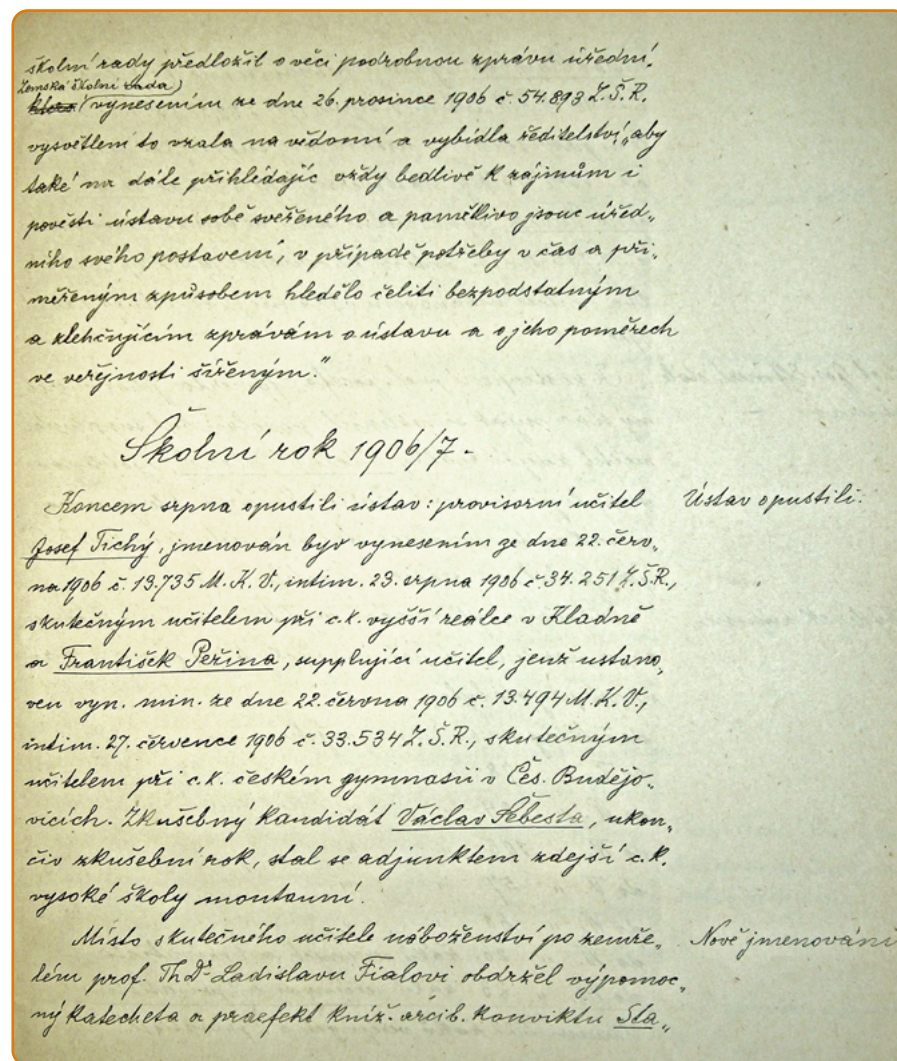 školní rady předložil o věci podrobnou zprávu úřední.
Zemská školní rada
která vynesením ze dne 26. prosince 1906 č. 54.893 Z.Š.R.
vysvětlení to vzala na vědomí a vybídla ředitelství, „aby
také na dále přihlédajíc vždy bedlivě k zájmům i
pověsti ústavu sobě svěřeného a pamětlivo jsouc úřed„
ního svého postavení, v případě potřeby v čas a při„
měřeným způsobem hledělo čeliti bezpodstatným
a zlehčujícím zprávám o ústavu a o jeho poměrech
ve veřejnosti šířeným."
Školní rok 1906/7.
Koncem srpna opustili ústav: provisorní učitel
Ústav opustili:
Josef Tichý, jmenován byv vynesením ze dne 22. červ„
na 1906 č. 13.735 M.K.V., intim. 23. srpna 1906 č. 34.251 Z.Š.R.,
skutečným učitelem při c.k. vyšší reálce v Kladně
a František Peřina, supplující učitel, jenž ustano„
ven vyn. min. ze dne 22. června 1906 č. 13.494 M.K.V.,
intim. 27. července 1906 č. 33.534 Z.Š.R., skutečným
učitelem při c.k. českém gymnasii v Čes. Budějo„
vicích. Zkušebný kandidát Václav Šebesta, ukon„
čiv zkušební rok, stal se adjunktem zdejší c.k.
vysoké školy montanní.
Místo skutečného učitele náboženství po zemře„
Nové jmenování
lém prof. ThDr Ladislavu Fialovi obdržel výpomoc„
ný katecheta a praefekt kníž. arcib. konviktu Sta„